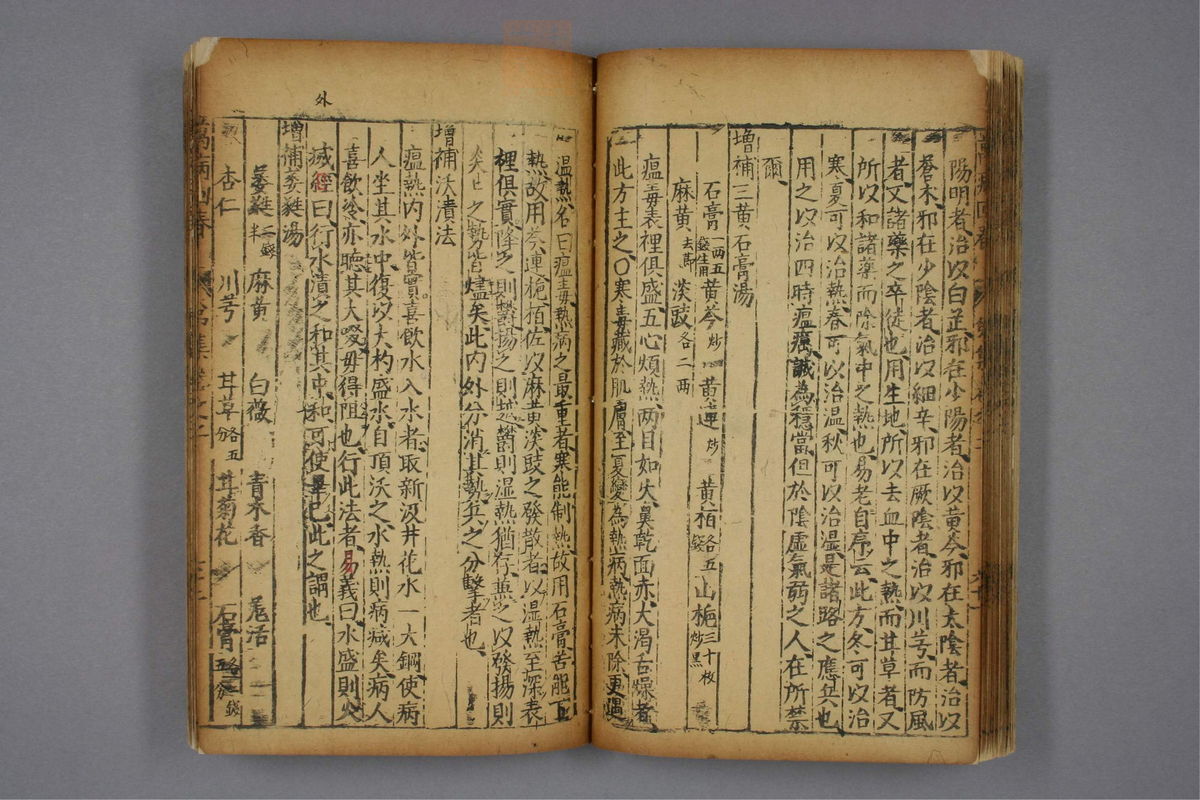 陽明者治以白芷邪在少陽者治以黃芩邪在太陰者治以
蒼朮邪在少陰者治以細辛邪在厥陰者治以川芎而防風
者又諸藥之卒徒也用生地所以去血中之熱而甘草者又
所以和諸藥而除氣中之熱也易老自序云此方冬可以治
寒夏可以治熱春可以治温秋可以治湿是諸路之應兵也
用之以治四時瘟癘誠為穩當但於陰虛氣弱之人在所禁
爾
增補三黃石膏湯
石膏一兩五錢生用 黃芩炒 黃連炒 黃栢各五錢 山梔三十枚炒黑
麻黃去節 淡豉各二兩
瘟毒表裡俱盛五心煩熱兩目如火鼻乾面赤大渴舌燥者
此方主之〇寒毒藏於肌膚至夏變為熱病熱病未除更遇
温熱名曰瘟毒熱病之最重者寒能制熱故用石膏苦能下
熱故用芩連梔栢佐以麻黃淡豉之發散者以湿熱至深表
裡俱實降之則欝揚之則越欝則湿熱猶存兼之以發揚則
炎之勢皆燼矣此內外分消其勢兵之分擊者也
增補沃漬法
瘟熱內外皆實喜飲水入水者取新汲井花水一大鋼使病
人坐其水中復以大杓盛水自頂沃之水熱則病減矣病人
喜飲冷亦聽其大啜毋得阻也行此法者易義曰水盛則火
滅經曰行水漬之和其中和可使畢已此之謂也
外
增補葳蕤湯
葳蕤二錢半 麻黃 白薇 青木香 羌活
杏仁 川芎 甘草各五分 甘菊花 石膏
萬病回春